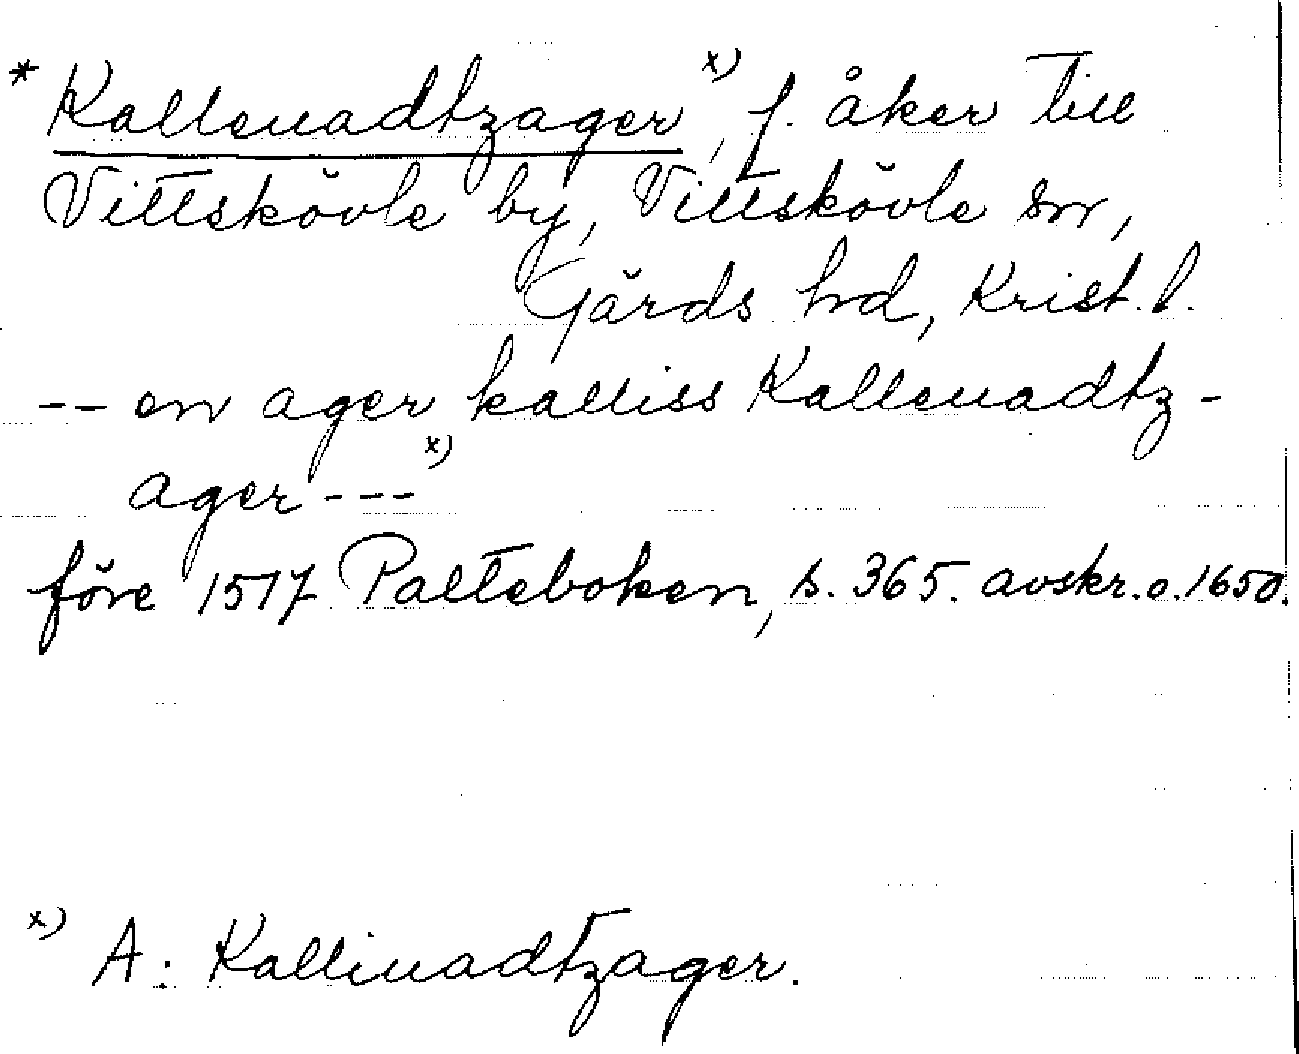 * Kalleuadtzager x), f. åker till
Vittskövle by, Vittskövle sn,
Gärds hd, Krist. l.
-- en ager kalliss Kalleuadtz-
ager --- x)
före 1517 Palteboken, s. 365. avskr. o. 1650.
x) A: Kalliuadtzager.